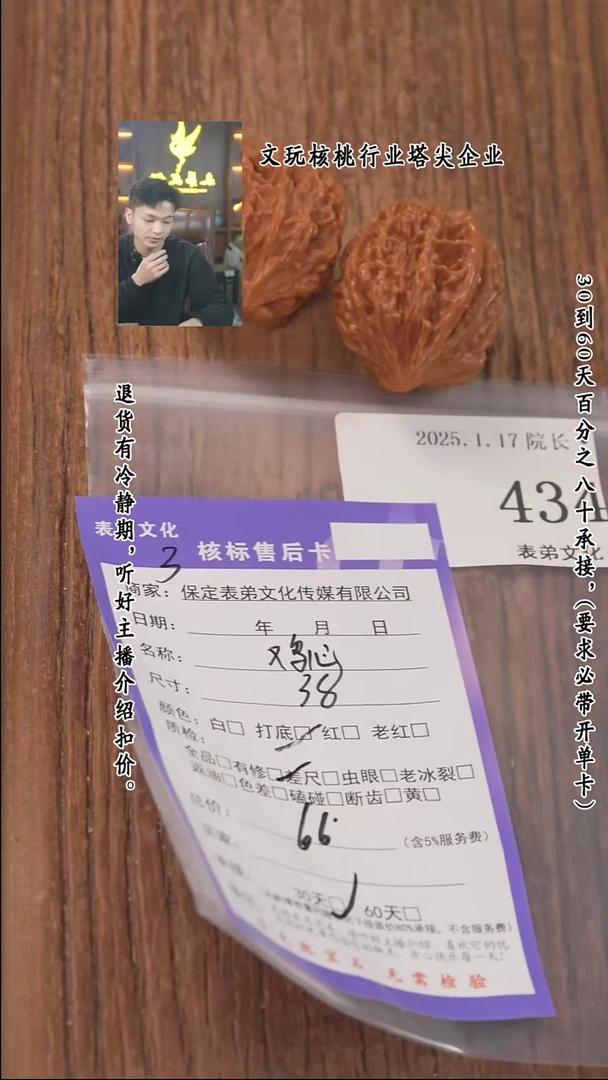 文玩核桃行业塔尖企业
30到60天百分之八十承接，（要求必带开单卡）
退货有冷静期，听好主播介绍扣价。
2025.1.17 院长
434
表弟文化
表弟文化
核标售后卡
3
商家：保定表弟文化传媒有限公司
日期： 年 月 日
名称： 鸡心
尺寸： 38
颜色：白□ 打底□ 红□ 老红□
质检：
全品□有修□差尺□虫眼□老冰裂□
返油□色差□磕碰□断齿□黄□
总价： 66.
（含5%服务费）
买家：
30天□ 60天□
下按原价80%承接，不含服务费）
听好主播介绍，喜欢它的优
开心快乐每一天！
天然宝石 无需检验